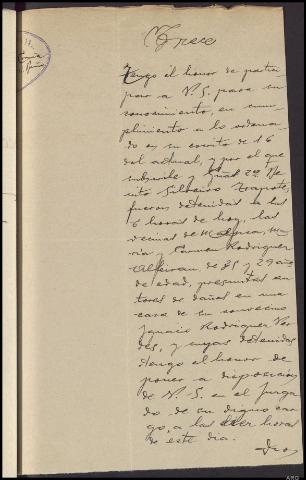 Trece
Tengo el honor de partici
par a V.S. para su
conocimiento, en cum
plimiento a lo ordena
do en su escrito de 16
del actual, y por el que
subscribe y Gual 2º Be
nito Silveiro
fueron detenidas a las
6 horas de hoy, las
vecinas de Ma
ria y Carmen Rodriguez
de 25 y 29 años
de edad, presuntas au
tores de daños en una
casa de su convecino
Ignacio Rodriguez Val
des, y cuyas detenidas
tengo el honor de
poner a disposición
de V.S. en el juzga
do de su digno car
go, a las diez horas
de este día.
Dios